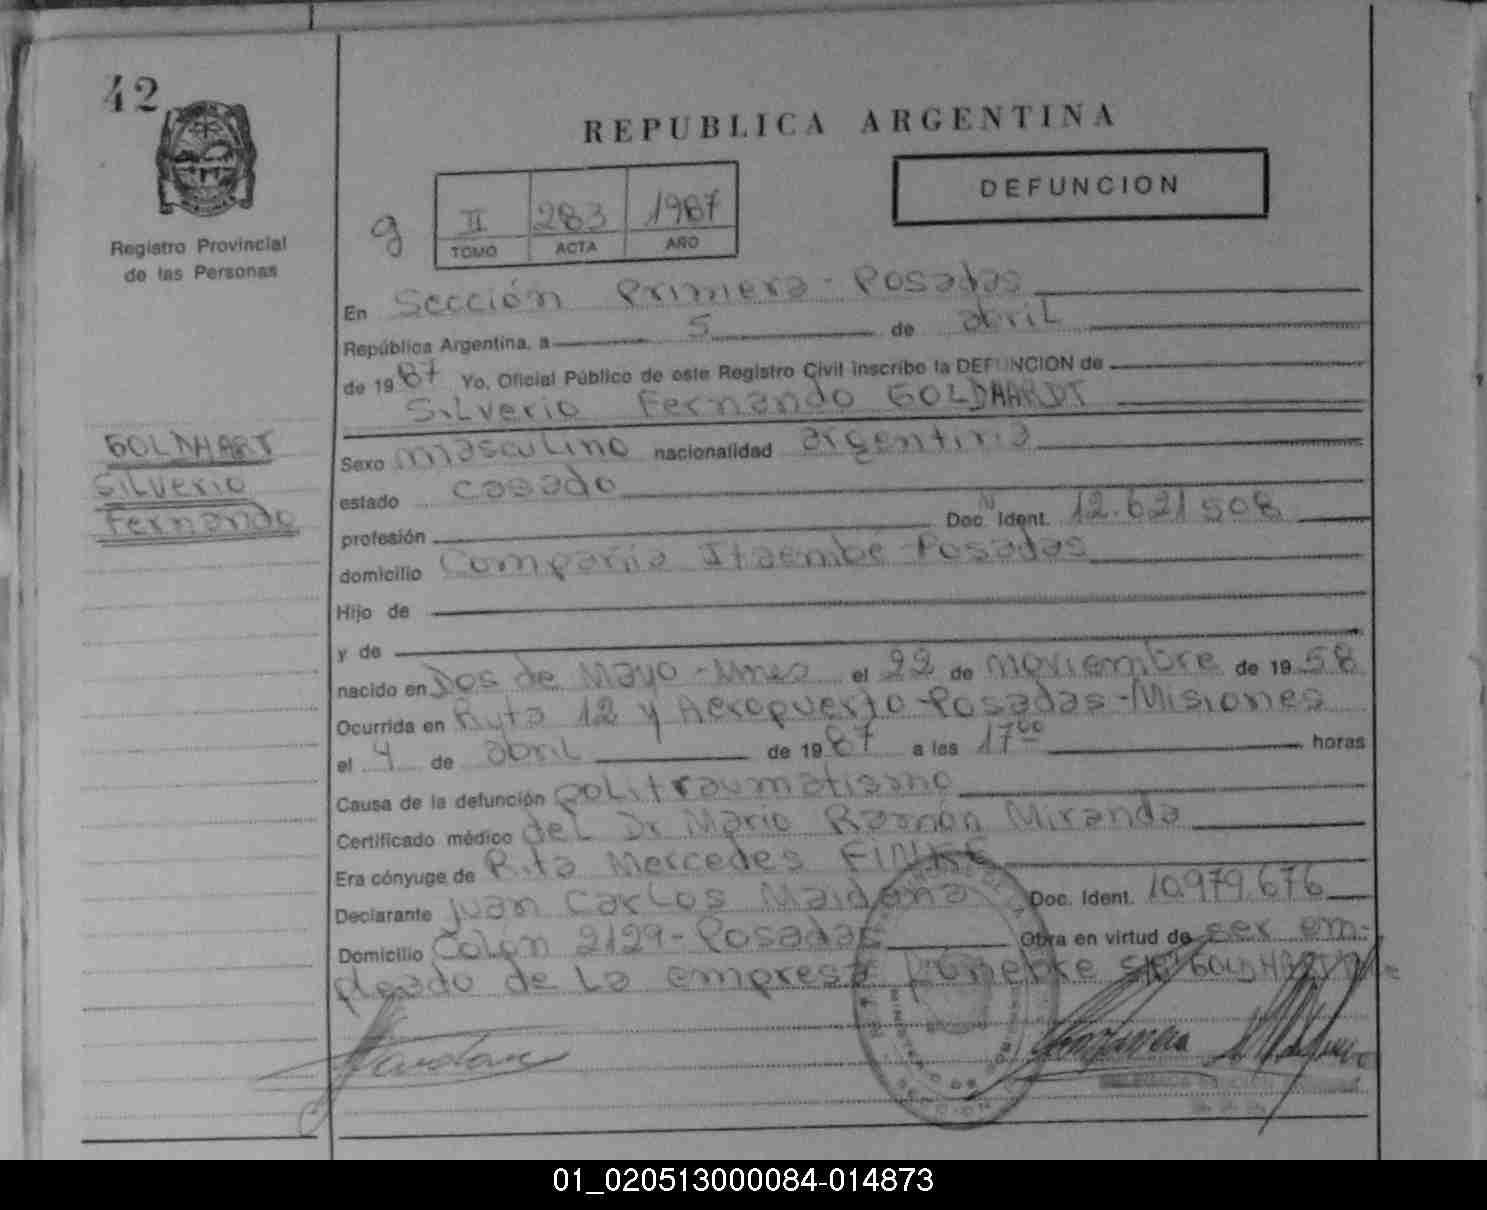 42
REPUBLICA ARGENTINA
DEFUNCION
g
II 283 1987
TOMO ACTA AÑO
Registro Provincial
de las Personas
En Sección Primera - Posadas
República Argentina, a 5 de abril
de 1987 Yo, Oficial Público de este Registro Civil inscribo la DEFUNCION de
Silverio Fernando GOLDHARDT
GOLDHART
Silverio
Fernando
Sexo masculino nacionalidad argentina
estado casado
profesión Doc. Ident. 12.621508
domicilio Compañia Itaembé - Posadas
Hijo de
y de
nacido en Dos de Mayo - Mnes el 22 de noviembre de 1958
Ocurrida en Ruta 12 y Aeropuerto - Posadas - Misiones
el 4 de abril de 1987 a las 17⁰⁰ horas
Causa de la defunción politraumatismo
Certificado médico del Dr Mario Ramón Miranda
Era cónyuge de Rita Mercedes
Declarante Juan Carlos Maidana Doc. Ident. 10.979.676
Domicilio Colón 2129 - Posadas Obra en virtud de ser em-
pleado de La empresa GOLDHARDT
01_020513000084-014873